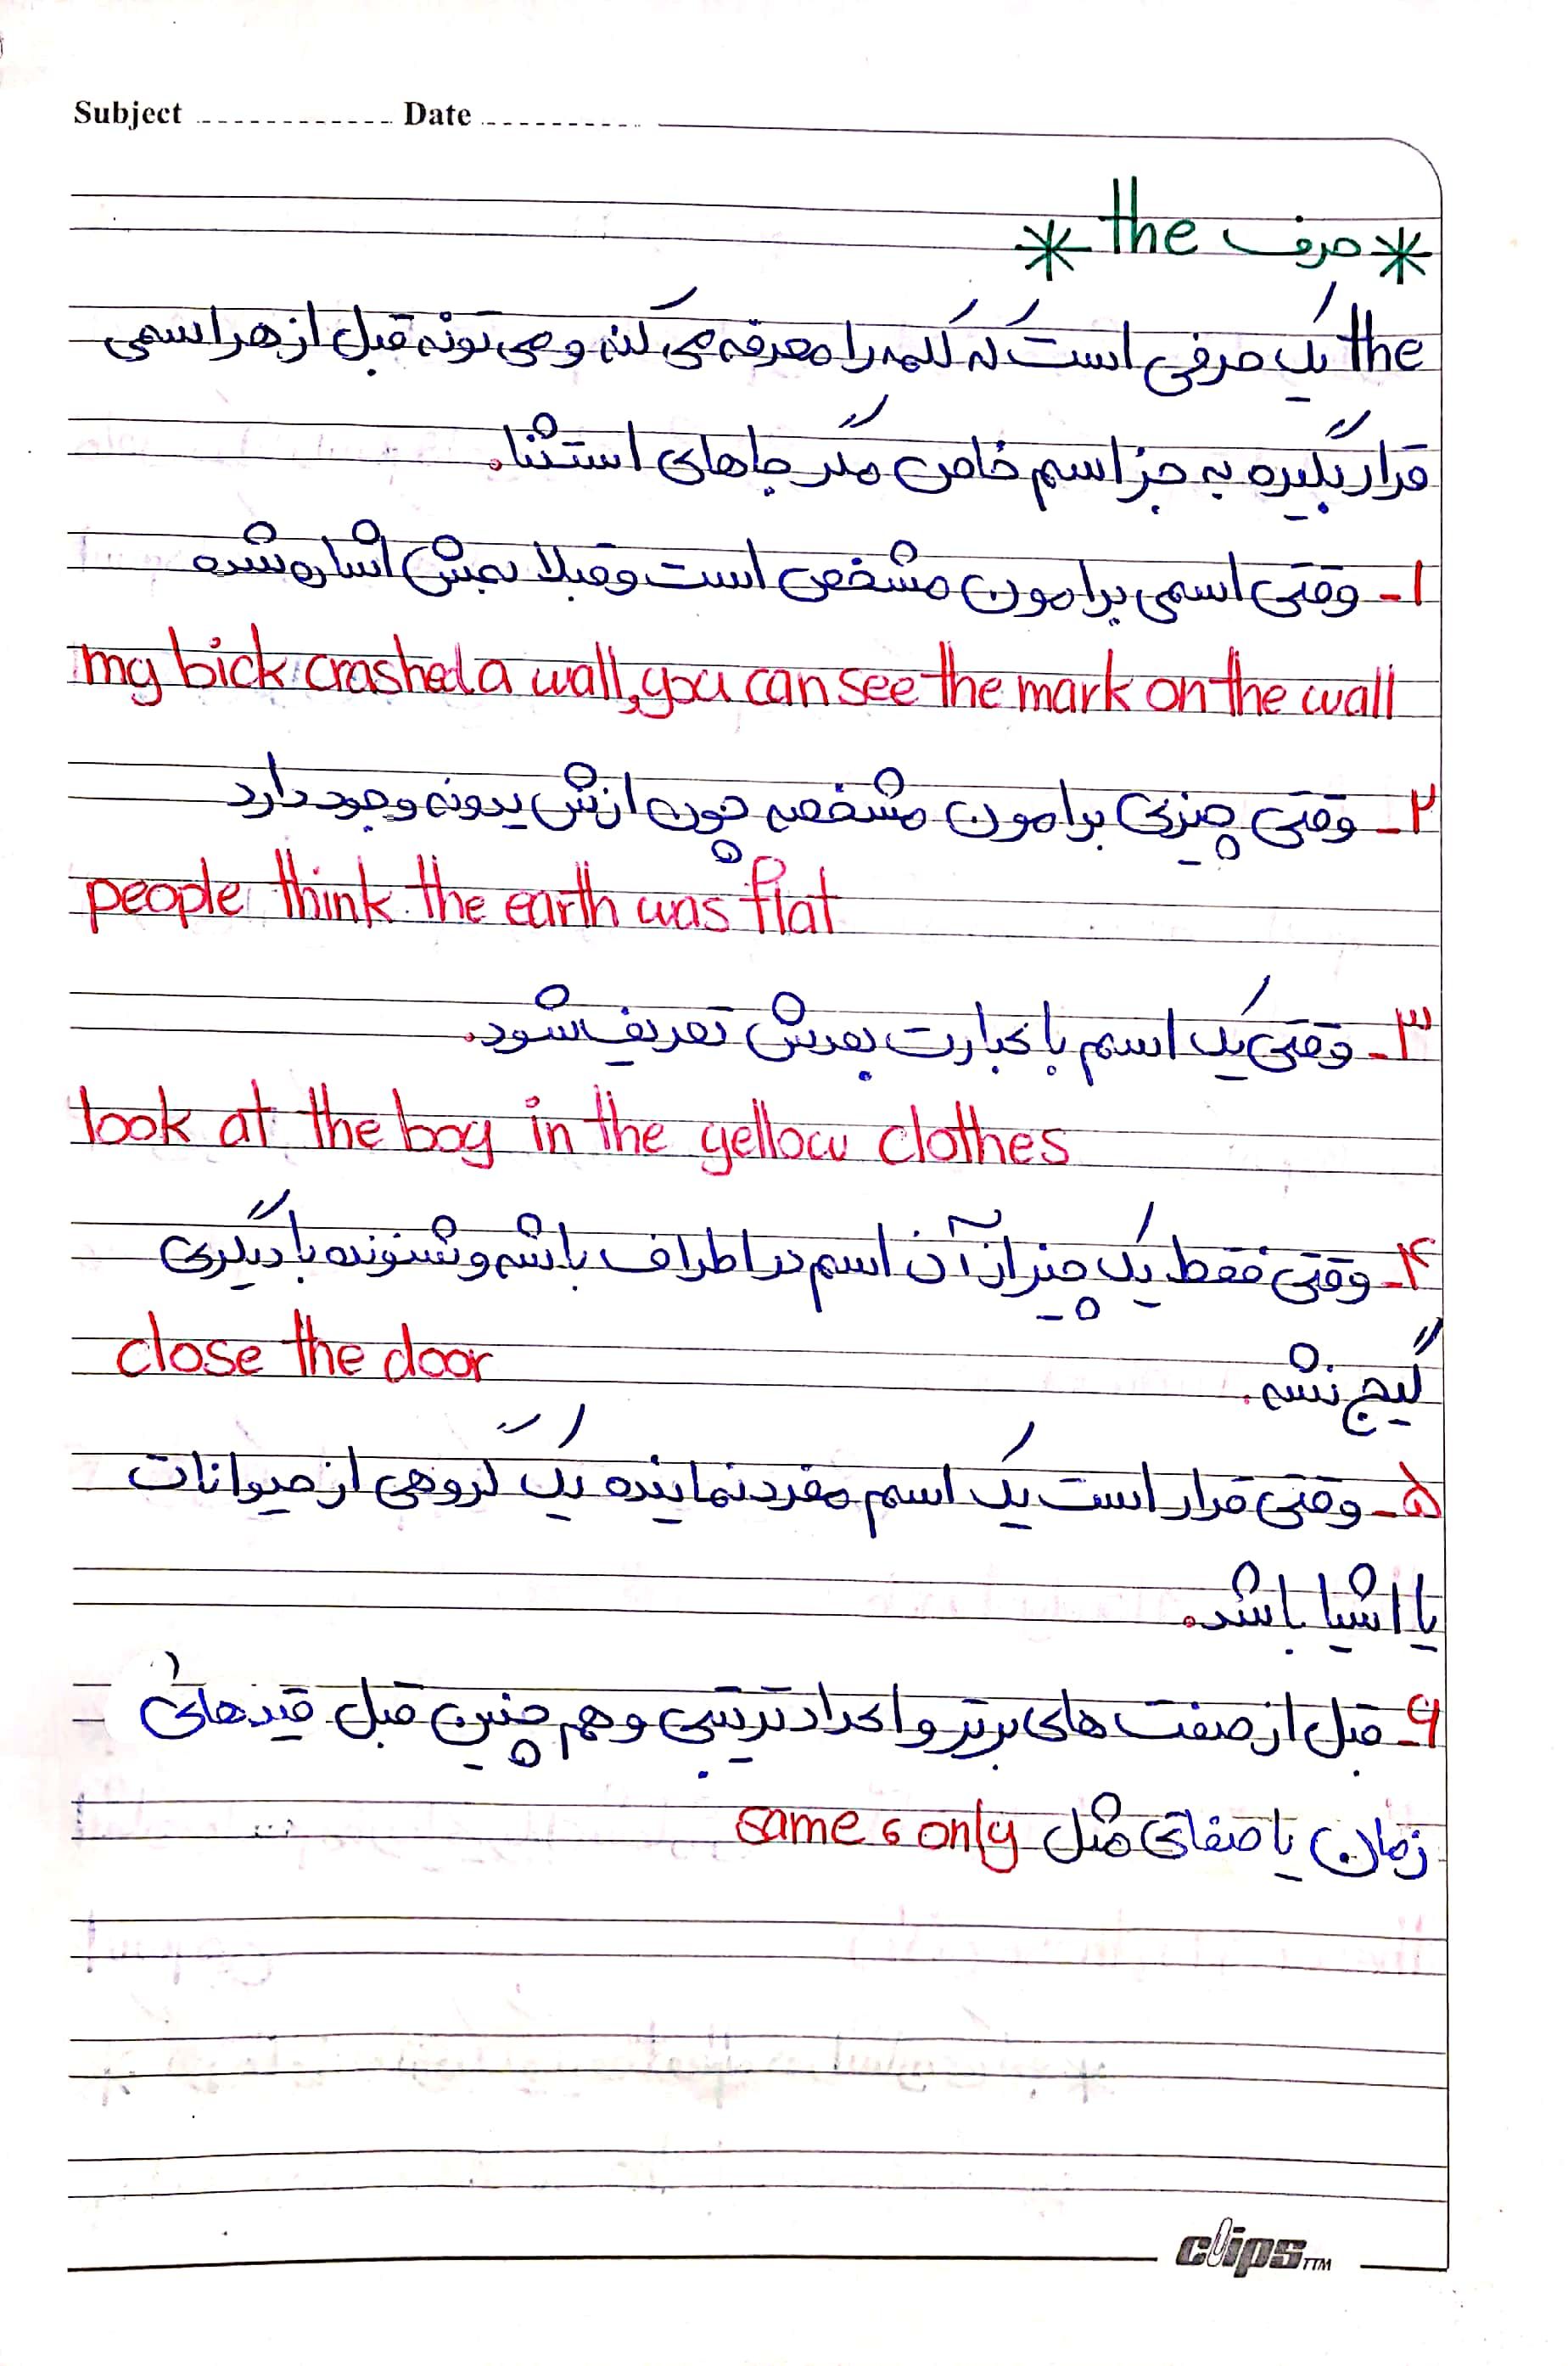 Subject ............ Date ...........
* حرف the *
the یک حرفی است که کلمه را معرفه می کنه و می تونه قبل از هر اسمی
قرار بگیره به جز اسم خاص مگر جاهای استثنا.
۱- وقتی اسمی برامون مشخص است و قبلا بهش اشاره شده
my bick crashed a wall, you can see the mark on the wall
۲- وقتی چیزی برامون مشخصه چون ازش یدونه وجود دارد
people think the earth was flat
۳- وقتی یک اسم با عبارت بعدش تعریف شود.
look at the boy in the yellow clothes
۴- وقتی فقط یک چیز از آن اسم در اطراف باشه و شنونده با دیگری
گیج نشه.
close the door
۵- وقتی قرار است یک اسم مفرد نماینده یک گروهی از حیوانات
یا اشیا باشد.
۶- قبل از صفت های برتر و اعداد ترتیبی و هم چنین قبل قیدهای
زمان یا صفاتی مثل same و only
clips TTM